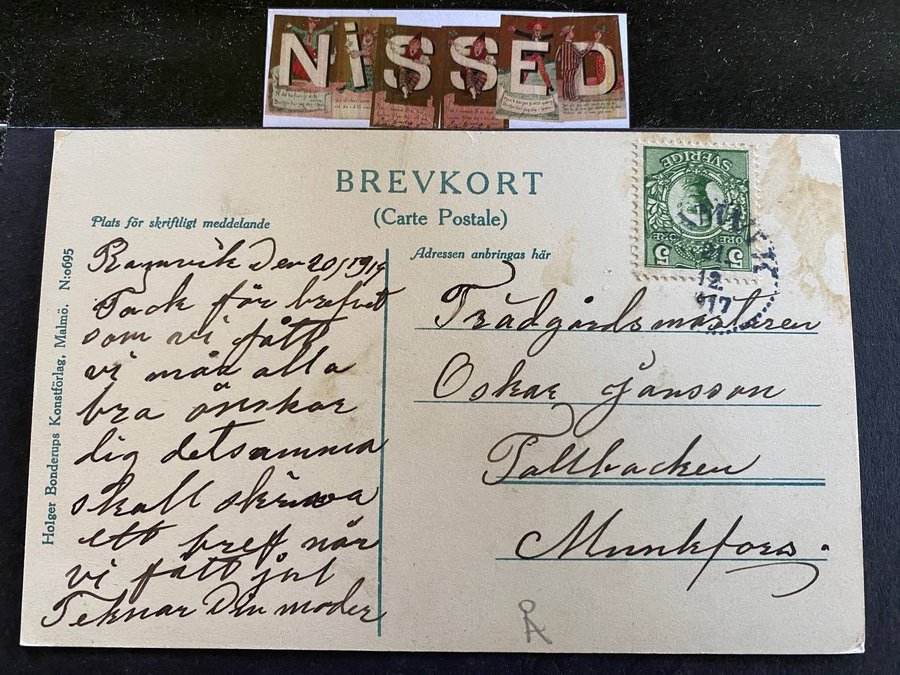 NiSSED
BREVKORT
(Carte Postale)
Plats för skriftligt meddelande
Adressen anbringas här
Holger Bonderups Konstförlag, Malmö. N:o695
SVERIGE
5 ÖRE 5
21
12
17
Ramvik Den 20/1914
Tack för brefvet
som vi fått
vi mår alla
bra önskar
dig detsamma
skall skriva
ett bref när
vi fått jul
Teknar Din moder
Trädgårdsmästaren
Oskar Jansson
Tallbacken
Munkfors.
Å